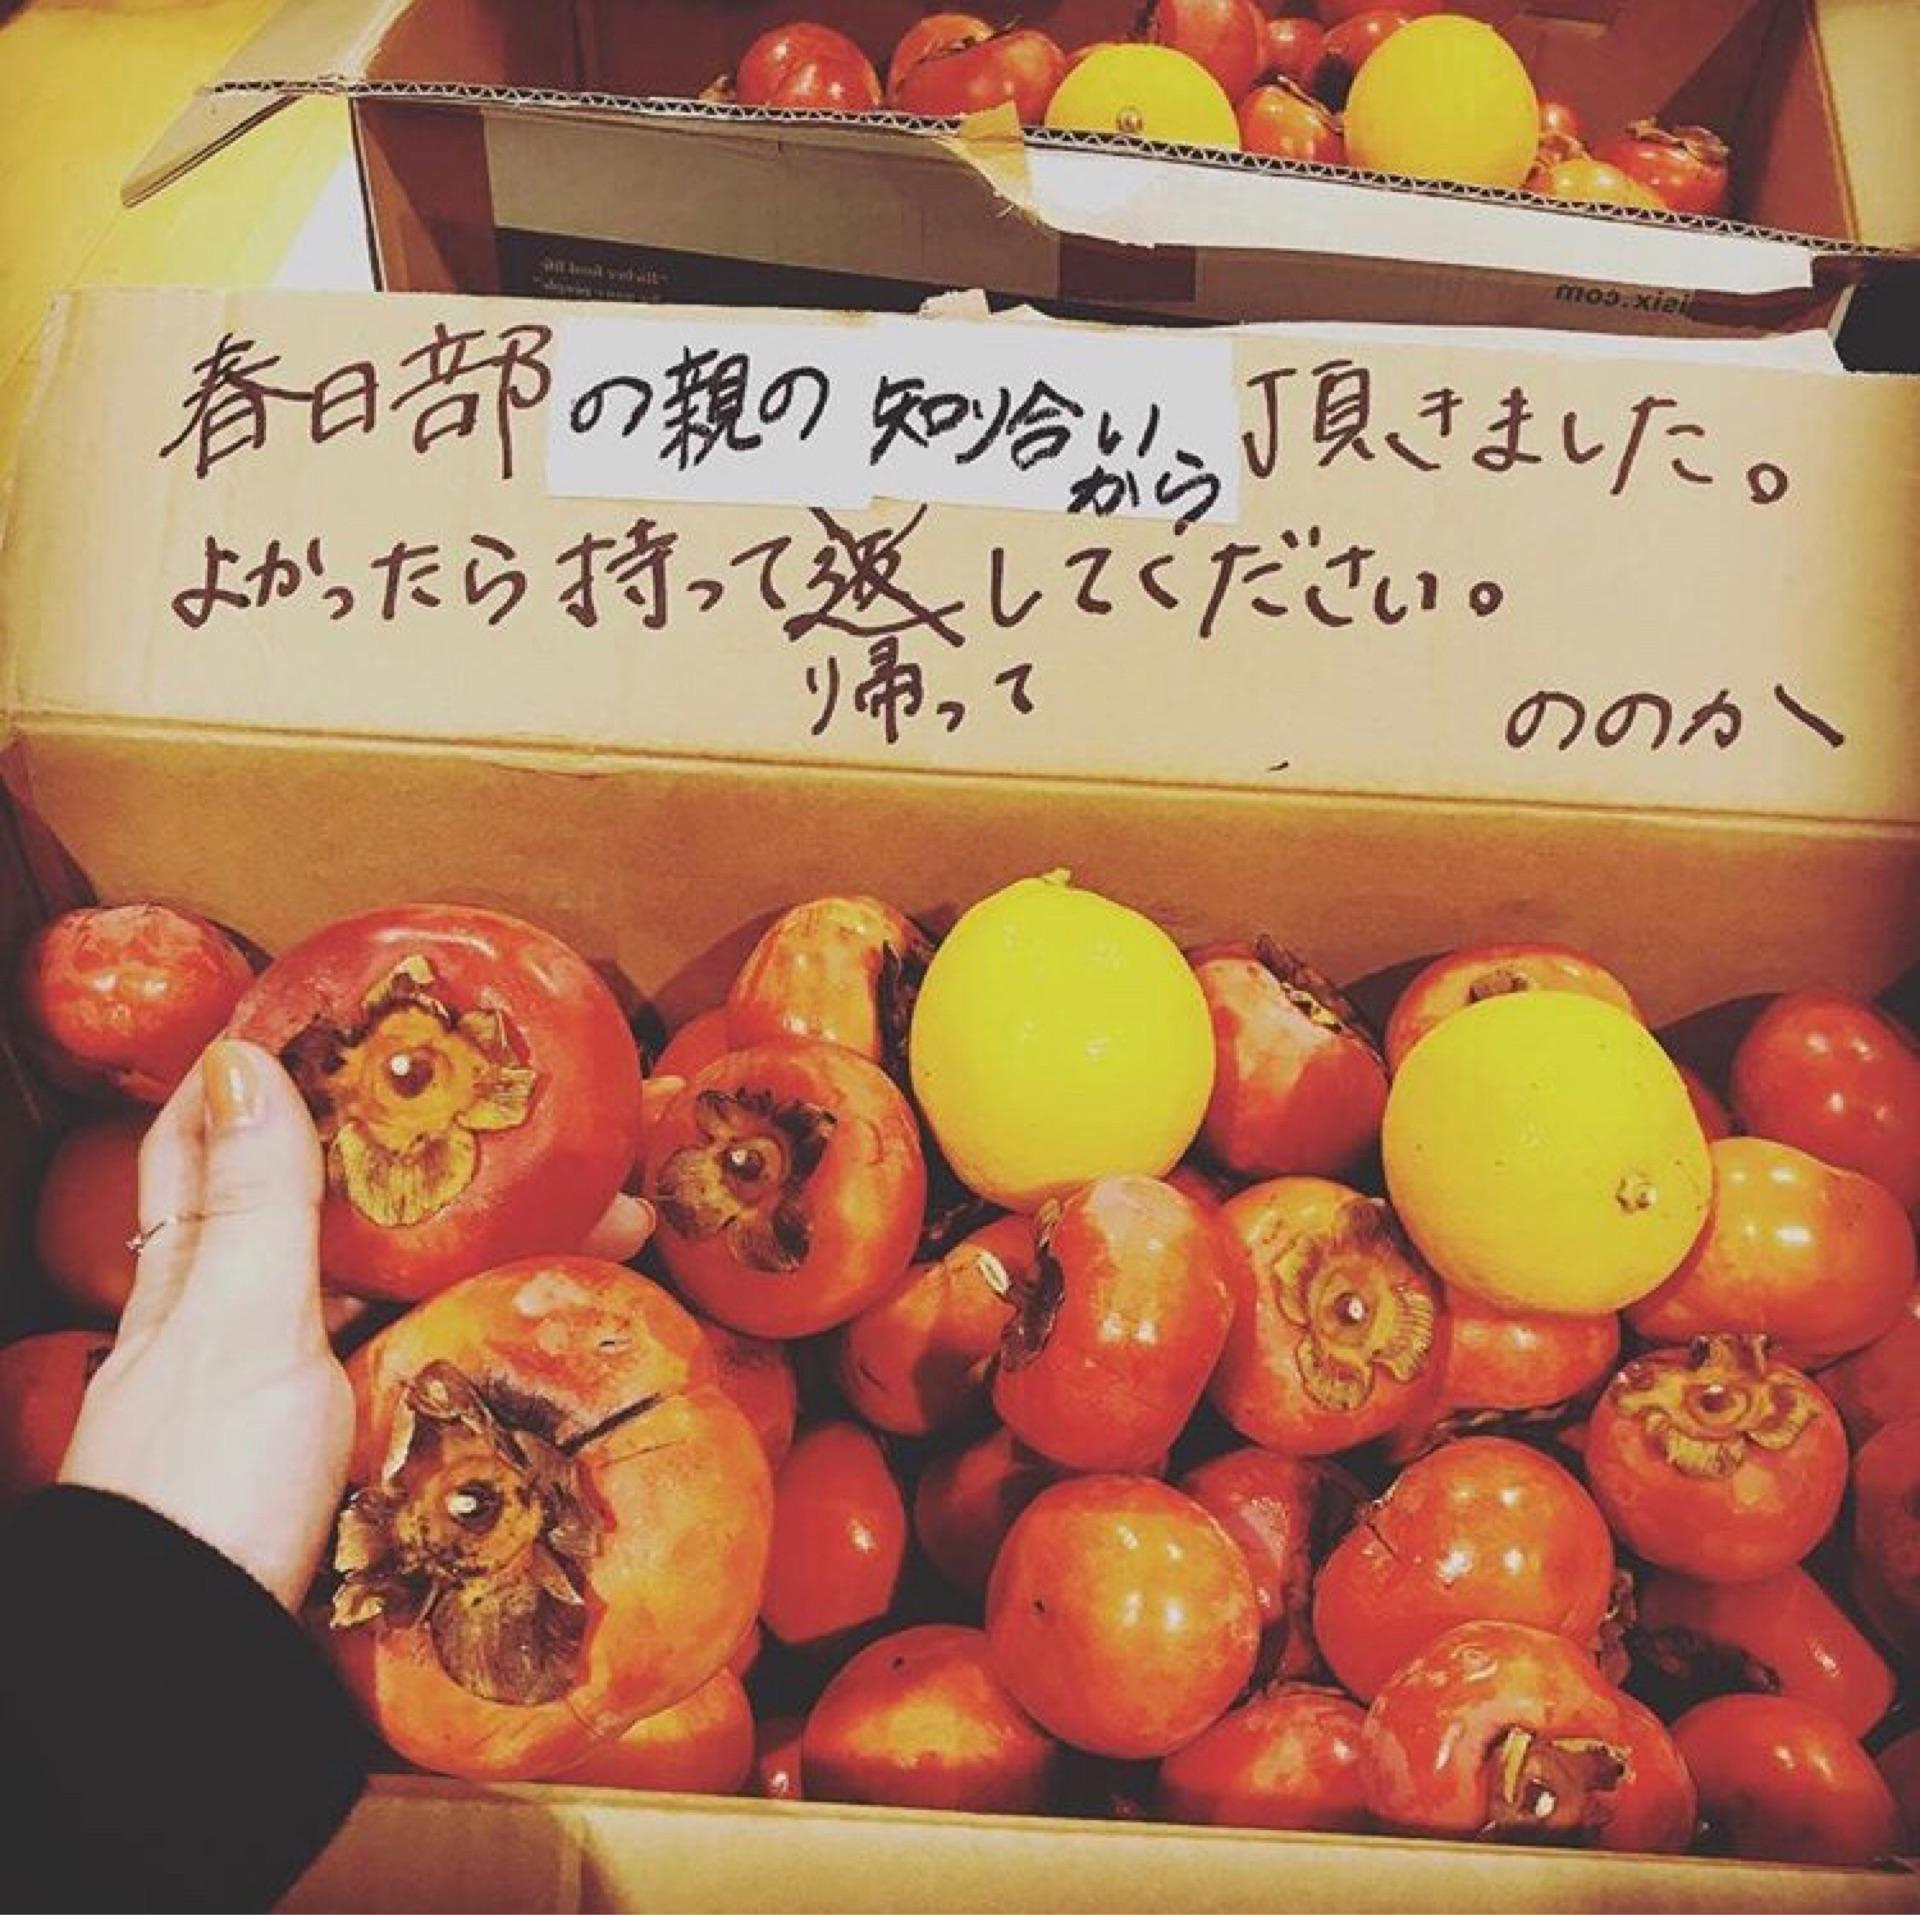 isix.com
春日部の親の知り合いから頂きました。
よかったら持って返してください。
り帰って
ののか